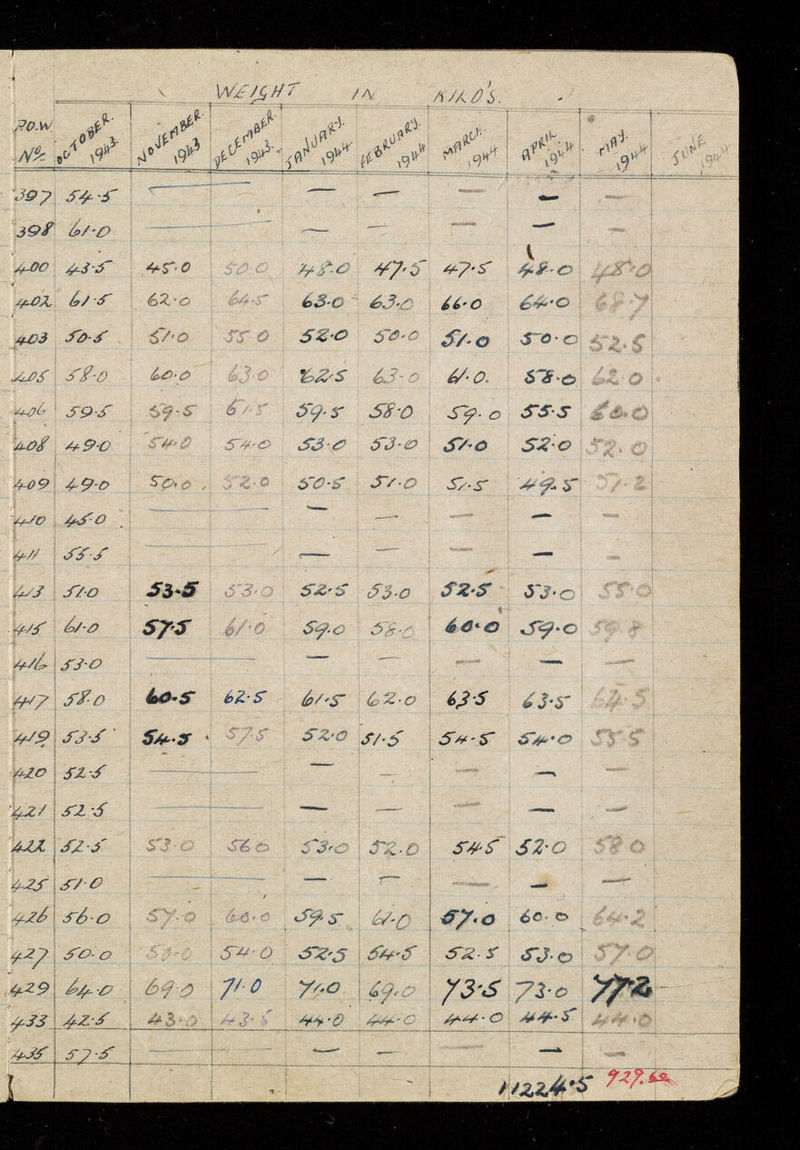 WEIGHT IN KILO'S.
P.O.W. No. OCTOBER. 1943. NOVEMBER. 1943 DECEMBER. 1943. JANUARY. 1944. FEBRUARY. 1944 MARCH. 1944 APRIL 1944 MAY. 1944 JUNE 1944
397 54.5 — — — — — —
398 61.0 — — — — — —
400 43.5 45.0 50.0 48.0 47.5 47.5 48.0 48.0
402 61.5 62.0 64.5 63.0 63.0 66.0 64.0 68.7
403 50.5 51.0 55.0 52.0 50.0 51.0 50.0 52.5
405 58.0 60.0 63.0 62.5 63.0 61.0. 58.0 62.0
406 59.5 59.5 61.5 59.5 58.0 59.0 55.5 60.0
408 49.0 54.0 54.0 53.0 53.0 51.0 52.0 52.0
409 49.0 50.0 52.0 50.5 51.0 51.5 49.5 51.2
410 45.0 — — — — — —
411 55.5 — — — — — —
413 51.0 53.5 53.0 52.5 53.0 52.5 53.0 55.0
415 61.0 57.5 61.0 59.0 58.0 60.0 59.0 59.8
416 53.0 — — — — — —
417 58.0 60.5 62.5 61.5 62.0 63.5 63.5 64.5
419 53.5 54.5 57.5 52.0 51.5 54.5 54.0 55.5
420 52.5 — — — — — —
421 52.5 — — — — — —
422 52.5 53.0 56.0 53.0 52.0 54.5 52.0 58.0
425 51.0 — — — — — —
426 56.0 57.0 60.0 59.5 61.0 57.0 60.0 64.2
427 50.0 50.0 54.0 52.5 54.5 52.5 53.0 57.0
429 64.0 69.0 71.0 71.0 69.0 73.5 73.0 77.2
433 42.5 43.0 43.5 44.0 44.0 44.0 44.5 44.0
435 57.5 — — — — —
11224.5